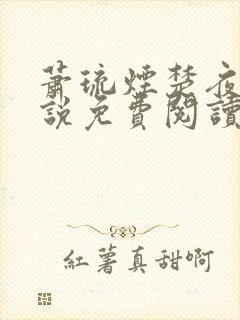 蕭琉煙楚夜
說免費閱讀
紅薯真甜啊